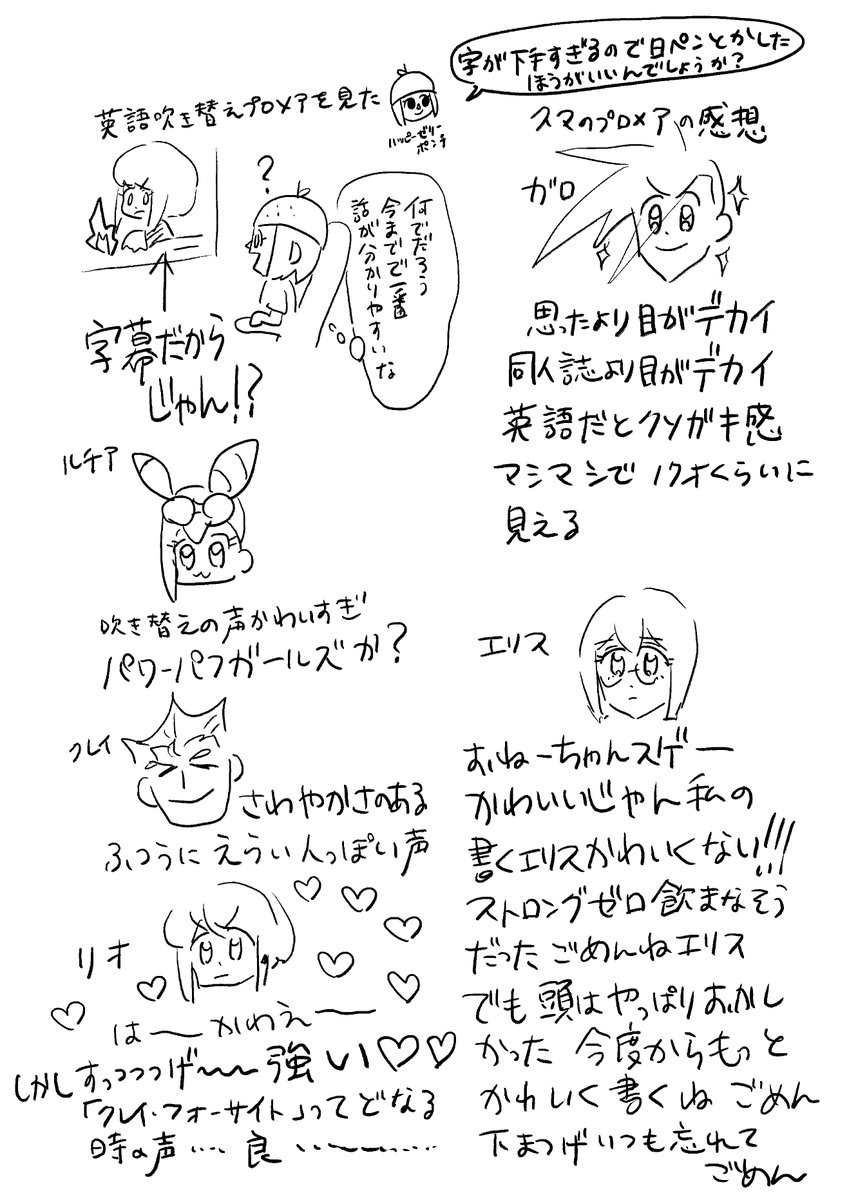 字が下手すぎるので日ペンとかした
ほうがいいんでしょうか?
英語吹き替えプロメアを見た
ハッピーゼリー
ポンチ
スマのプロメアの感想
?
何でだろう
今までで一番
話が分かりやすいな
字幕だから
じゃん!?
ガロ
思ったより目がデカイ
同人誌より目がデカイ
英語だとクソガキ感
マシマシで17才くらいに
見える
ルチア
吹き替えの声かわいすぎ
パワーパフガールズか?
クレイ
さわやかさのある
ふつうにえらい人っぽい声
リオ
は〜かわえー
しかしすっっっげ〜〜強い♡♡
「クレイ・フォーサイト」ってどなる
時の声‥‥良‥ー〜‥‥‥
エリス
おねーちゃんスゲー
かわいいじゃん私の
書くエリスかわいくない!!!
ストロングゼロ飲まなそう
だったごめんねエリス
でも頭はやっぱりおかし
かった 今度からもっと
かわいく書くね ごめん
下まつげいつも忘れて
ごめん